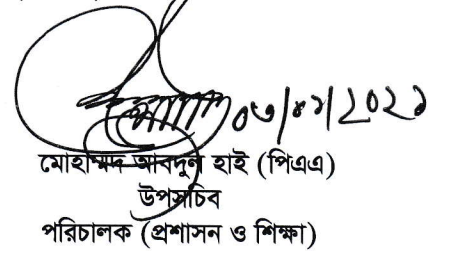 ০৩/০১/২০২১
মোহাম্মদ আবদুল হাই (পিএএ)
উপসচিব
পরিচালক (প্রশাসন ও শিক্ষা)